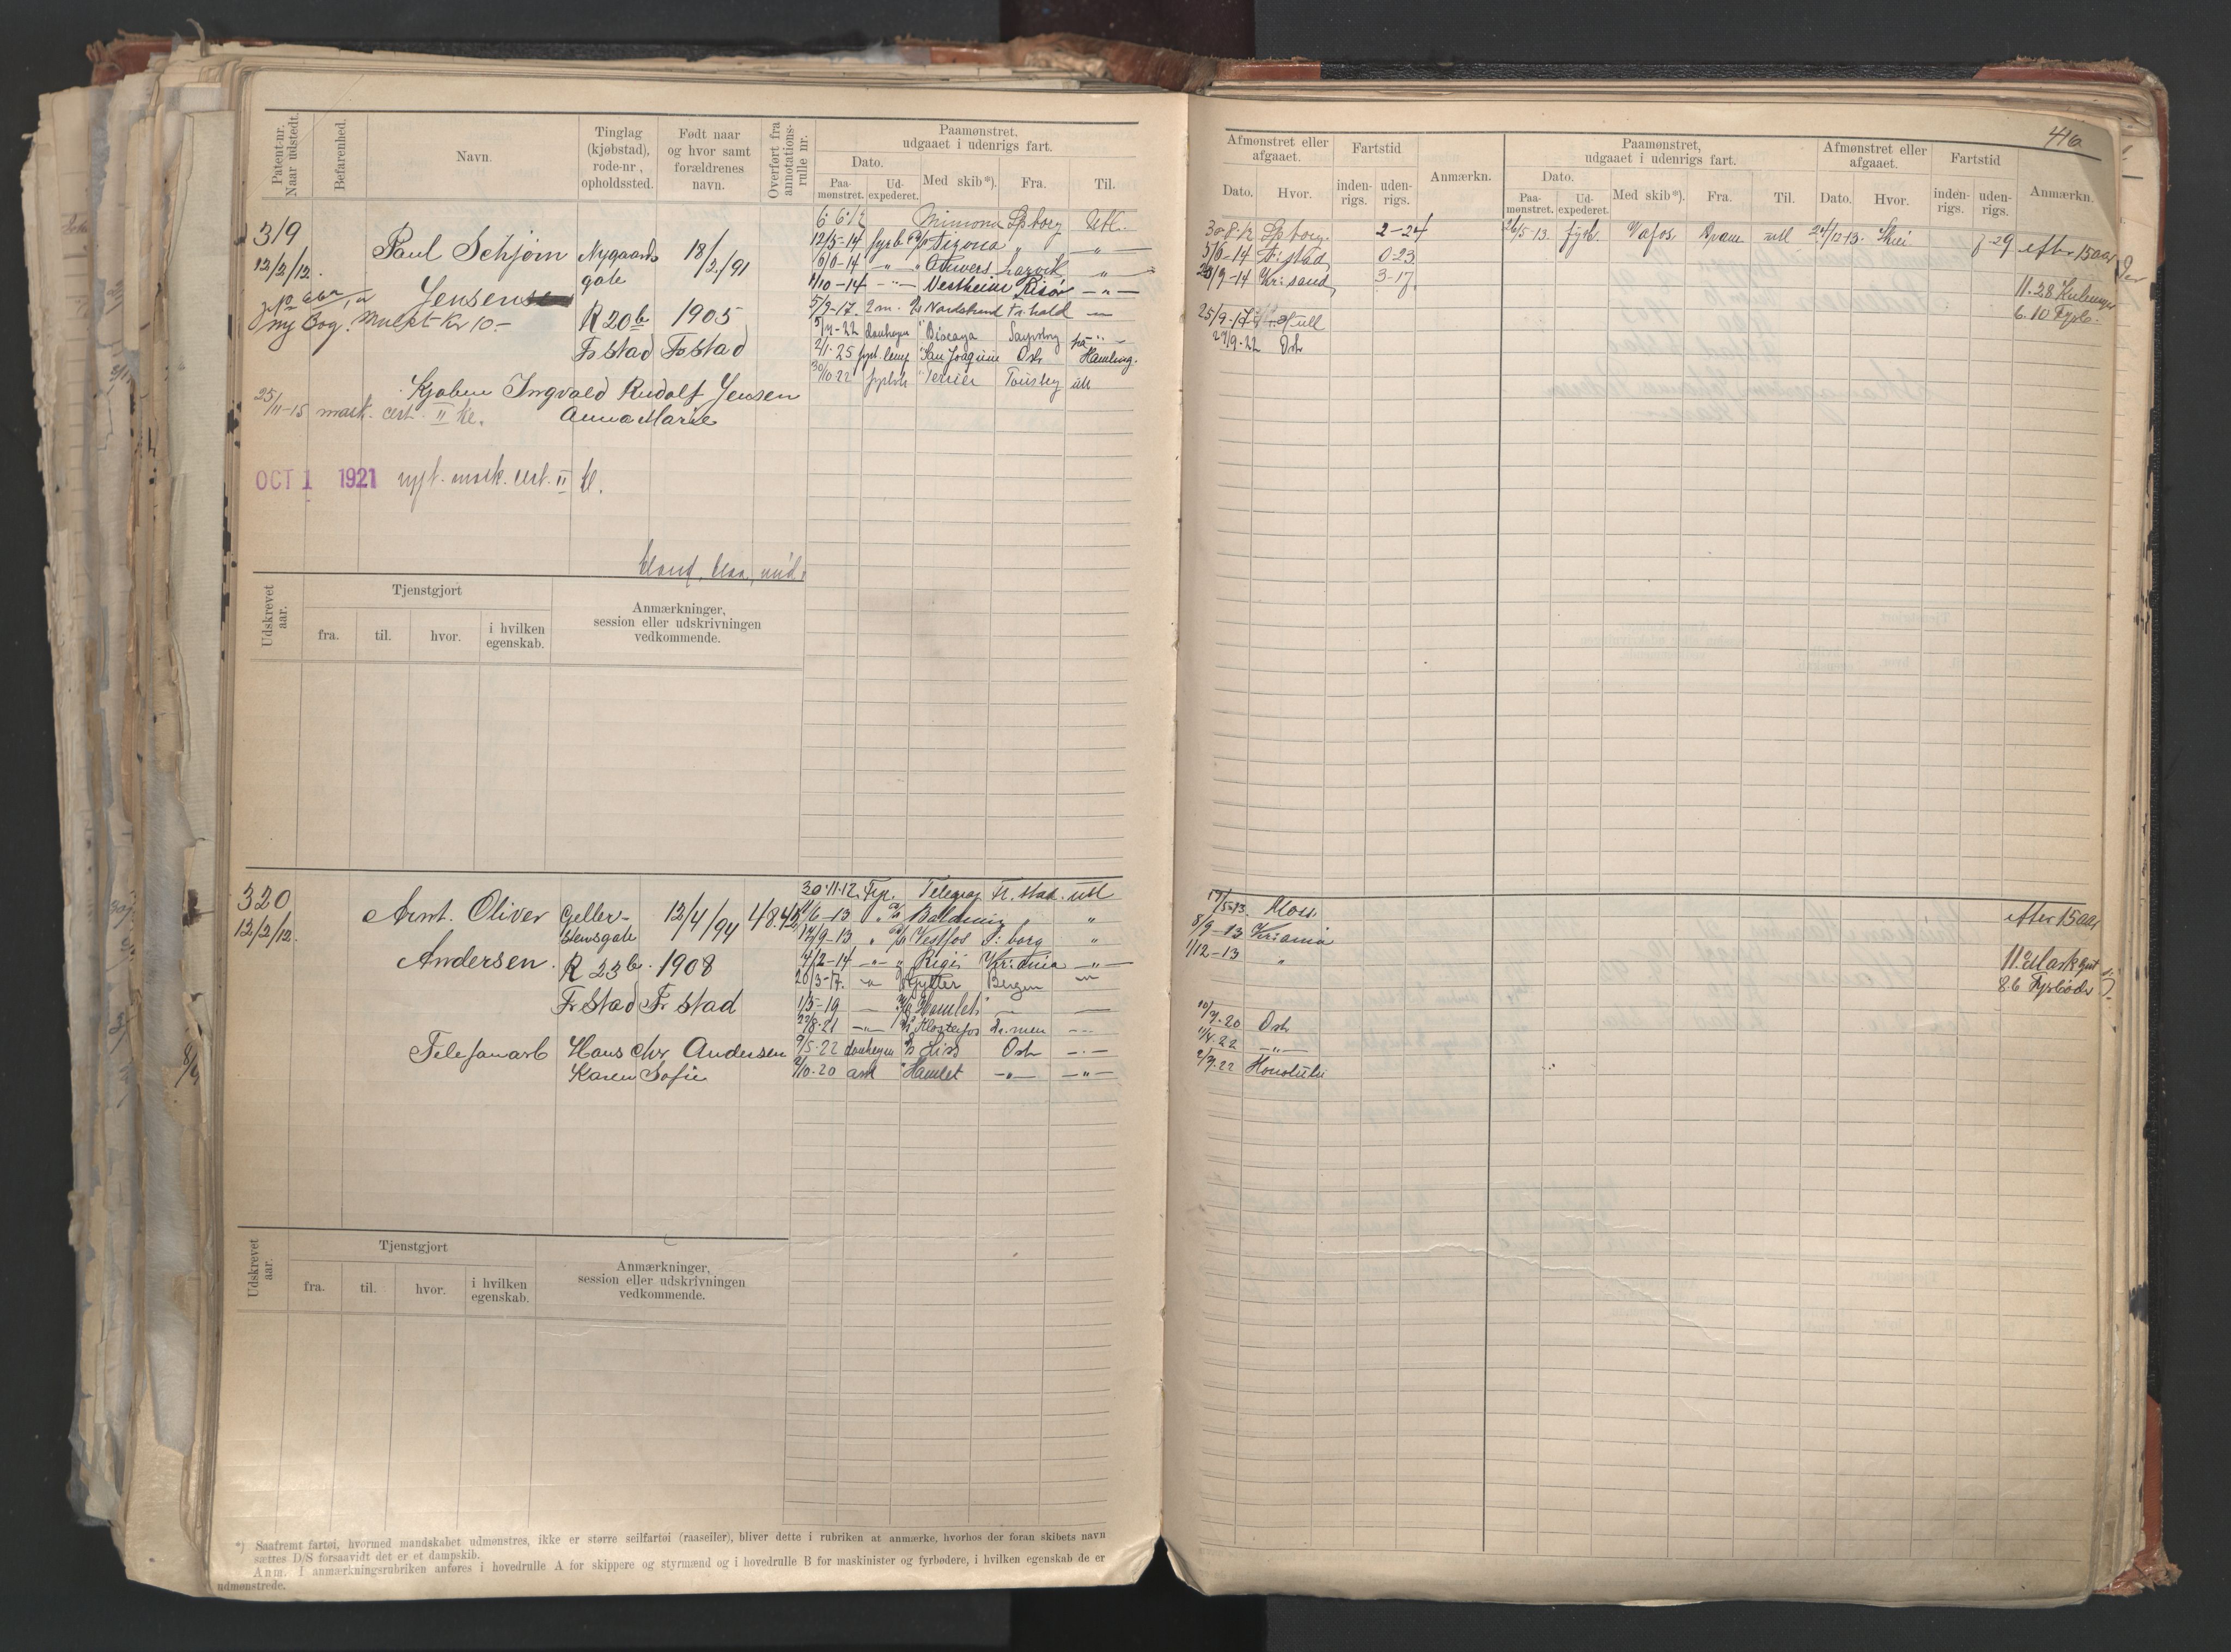 Patent-nr.
Naar udstedt.
Befarenhed.
Navn.
Tinglag
(kjøbstad),
rode-nr,
opholdssted.
Født naar
og hvor samt
forældrenes
navn.
Overført fra
annotations-
rulle nr.
Paamønstret,
udgaaet i udenrigs fart.
Dato.
Paa-
mønstret.
Ud-
expederet.
Med skib*).
Fra.
Til.
319
12/2/12.
Paul Schjörn
Jensen
Nygaards
gate
R 20b
Fr stad
18/2/91
1905
Fr stad
ny Bog. Mulkt Kr 10-
Ingvald Rudolf Jensen
Anna Marie
25/11-15 mask. cert. II kl.
OCT 1 1921 nyt. mask. cert. II kl.
6 6 12 Mimona Spborg Utl.
12/5-14 fyrb " "
6/6-14 " " Larvik "
11/10-14 -"- Vestheim Risør -"-
5/9-17. 2 m. Nordstrand Fr.hald
5/4-22 donkeym " Biscaya Sarpsborg
2/1-25 " San Joaquin Osl Hamburg.
30/10 22 fyrbøt " Terrier Tønsbg utl
Udskrevet
aar.
Tjenstgjort
fra.
til.
hvor.
i hvilken
egenskab.
Anmærkninger,
session eller udskrivningen
vedkommende.
320
12/2/12.
Arnt. Oliver
Andersen.
R 23b.
Fr Stad
12/4/94
1908
Fr stad
48.42
Telefonarb
Hans Chr Andersen
Karen Sofie
30.11.12. Fyr. Telegraf Fr. stad. utl
11/6-13 " Balduin " "
12/9-13 " Vestfos S: borg "
4/2-14 -"- " Rigi Kr:ania -"-
20/3-17. Rytter Bergen
1/5-19 Hamlet
22/8-21 -"- Klosterfos Dr.men
9/5-22 donkeym Liss Osl -"-
2/10-20 ask " Hamlet -"- -"-
Udskrevet
aar.
Tjenstgjort
fra.
til.
hvor.
i hvilken
egenskab.
Anmærkninger,
session eller udskrivningen
vedkommende.
*) Saafremt fartøi, hvormed mandskabet udmønstres, ikke er større seilfartøi (raaseiler), bliver dette i rubriken at anmærke, hvorhos der foran skibets navn
sættes D/S forsaavidt det er et dampskib.
Anm. I anmærkningsrubriken anføres i hovedrulle A for skippere og styrmænd og i hovedrulle B for maskinister og fyrbødere, i hvilken egenskab de er
udmønstrede.
416
Afmønstret eller
afgaaet.
Dato.
Hvor.
Fartstid
inden-
rigs.
uden-
rigs.
Anmærkn.
Paamønstret,
udgaaet i udenrigs fart.
Dato.
Paa-
mønstret.
Ud-
expederet.
Med skib*).
Fra.
Til.
Afmønstret eller
afgaaet.
Dato.
Hvor.
Fartstid
inden-
rigs.
uden-
rigs.
Anmærkn.
30-8-12 Spborg. 2-24
26/5-13. fyrb. Vafos utl 24/12-13. 7-29 efter 15 aar
5/6-14 Fr: stad 0-23
23/9-14 Kr: sand 3-17.
11.28
6.10 Fyrb.
25/9-17 Hull
29/9-22 Osl
Moss
efter 15 aar
8/9-13 Kr:ania
1/12-13 "
8.6 Fyrbøder
10/9.20 Osl
11/4.22 -"-
2/9.22 Honolulu